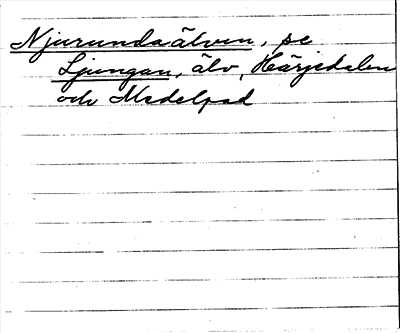 Njurundaälven, se
Ljungan, älv, Härjedalen
och Medelpad